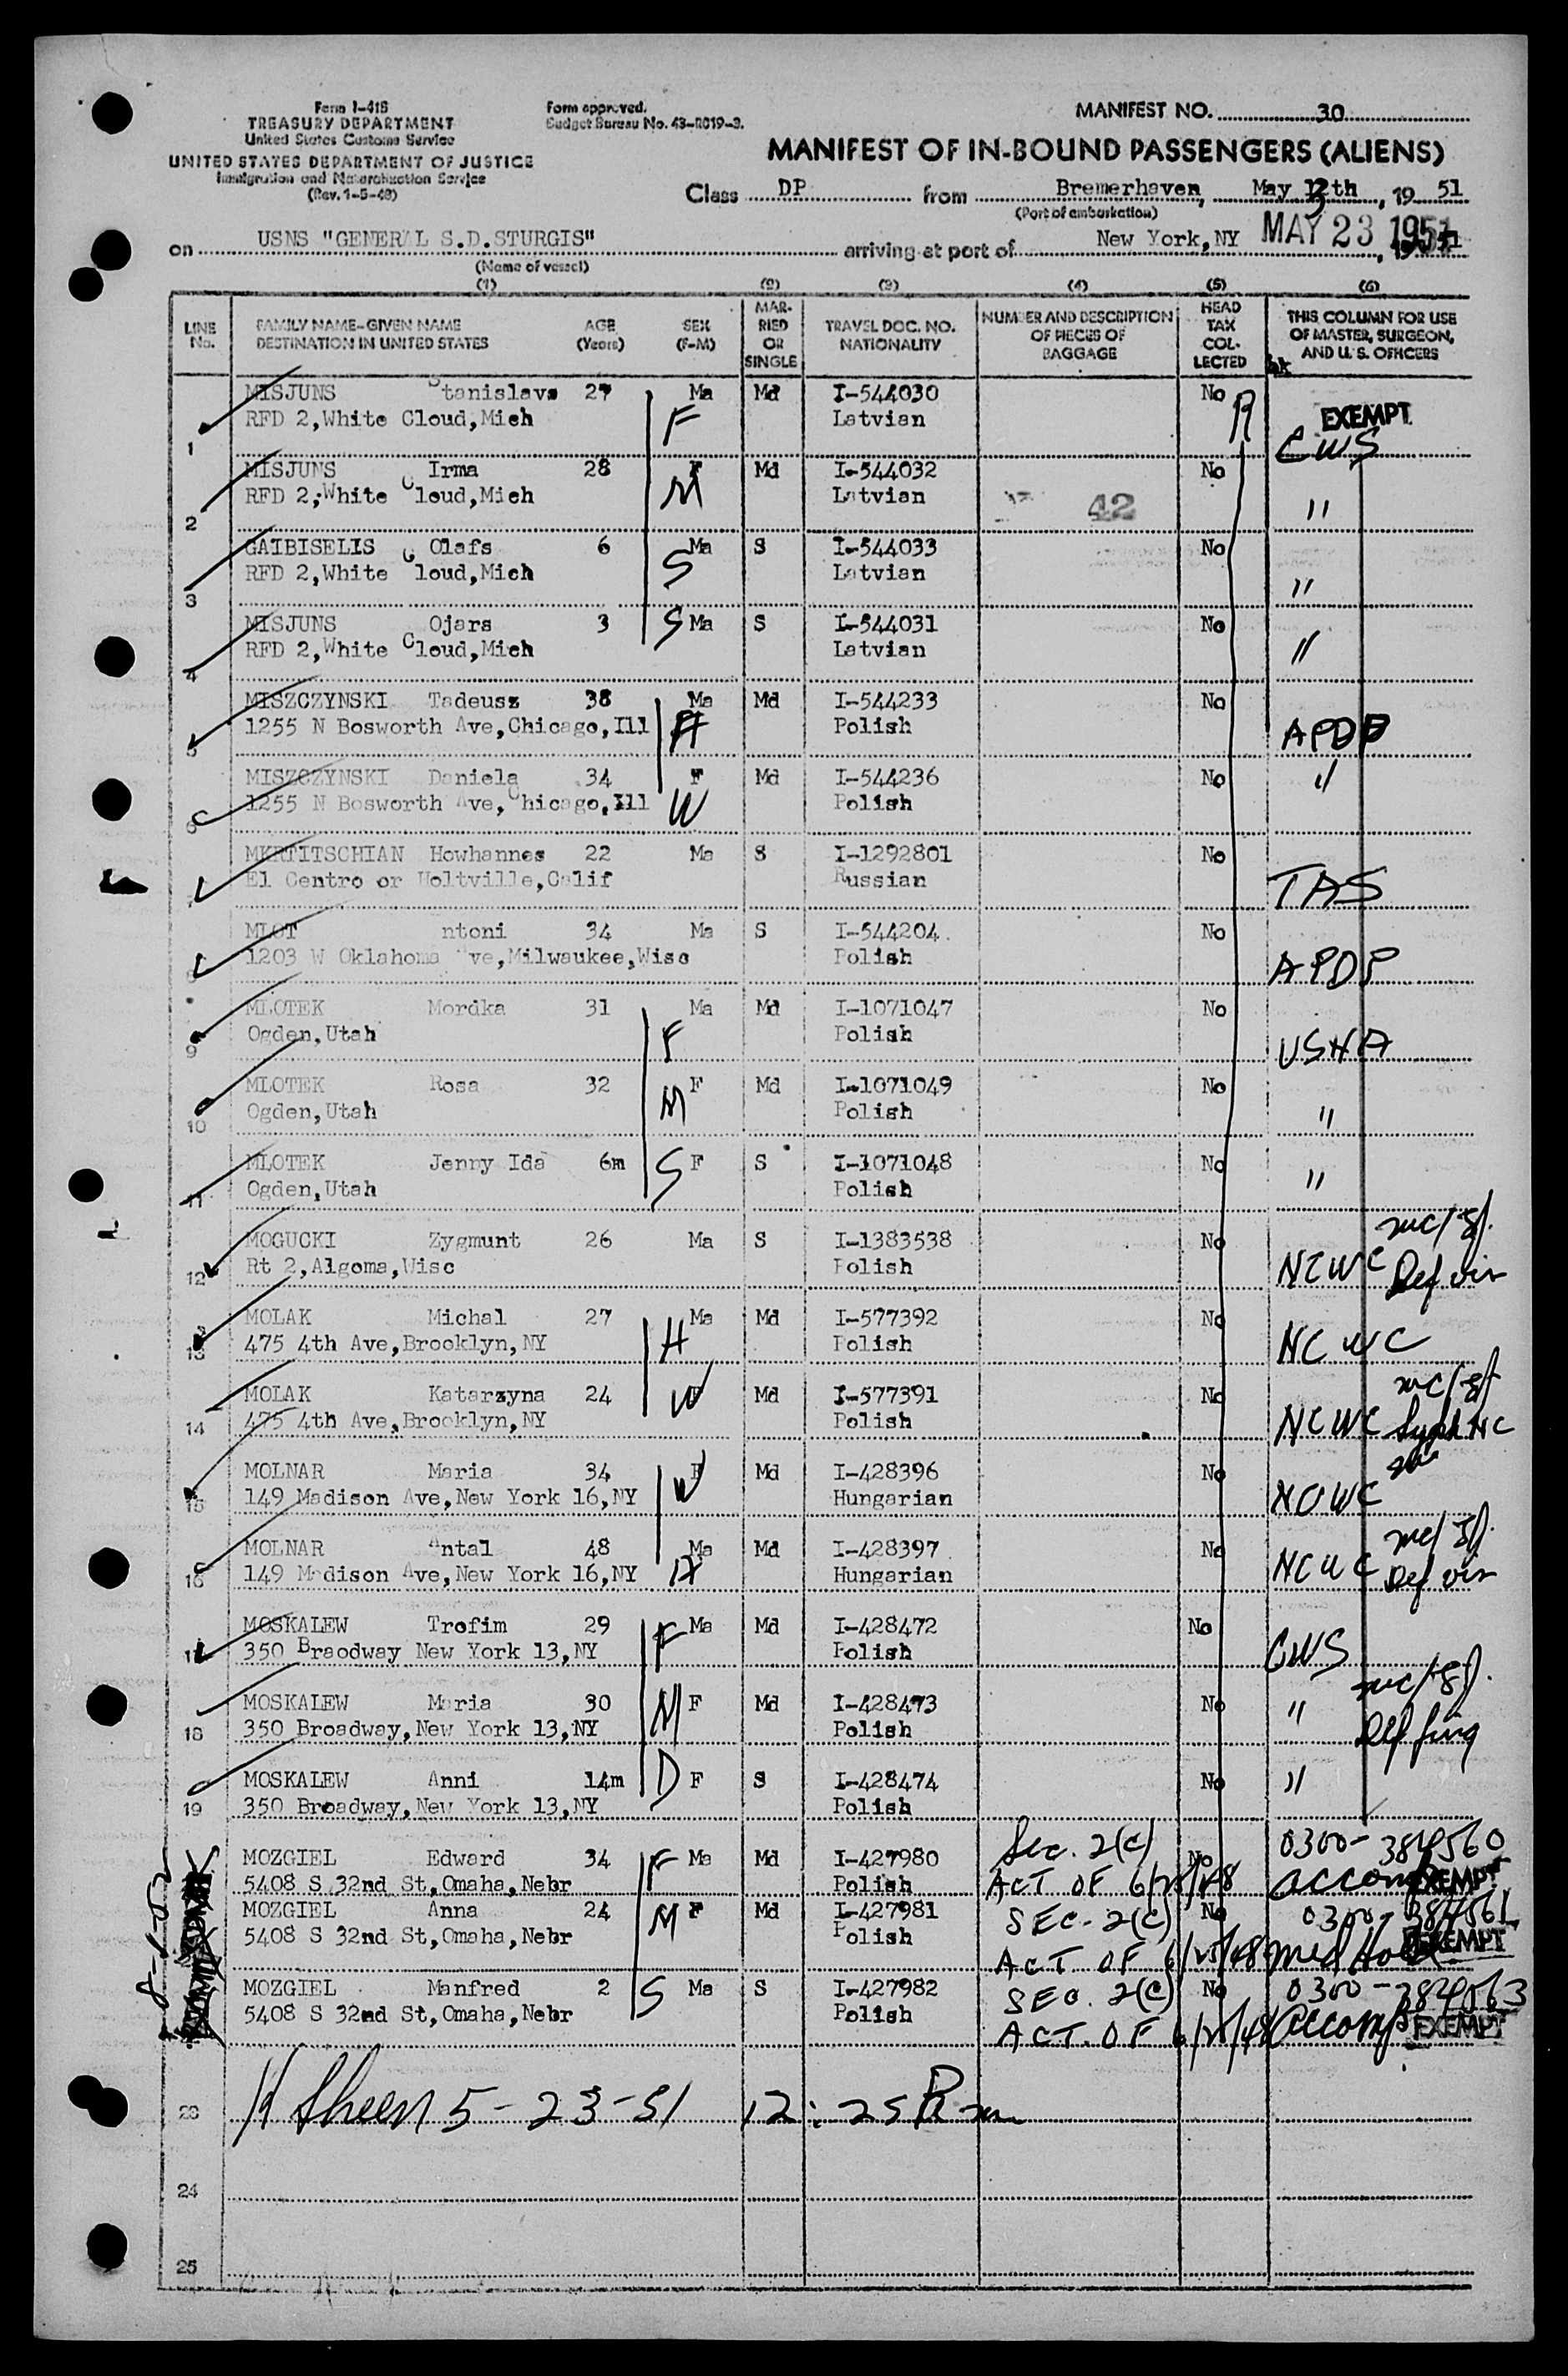 Form I-418
TREASURY DEPARTMENT
United States Customs Service
UNITED STATES DEPARTMENT OF JUSTICE
Immigration and Naturalization Service
(Rev. 1-5-48)
Form approved.
Budget Bureau No. 43-R019-3.
MANIFEST NO. 30
MANIFEST OF IN-BOUND PASSENGERS (ALIENS)
Class DP from Bremerhaven, May 13th, 19 51
(Port of embarkation)
on USNS "GENERAL S.D.STURGIS" arriving at port of New York,NY MAY 23 1951
(Name of vessel)
(1) (2) (3) (4) (5) (6)
LINE No. FAMILY NAME-GIVEN NAME DESTINATION IN UNITED STATES AGE (Years) SEX (F-M) MARRIED OR SINGLE TRAVEL DOC. NO. NATIONALITY NUMBER AND DESCRIPTION OF PIECES OF BAGGAGE HEAD TAX COLLECTED THIS COLUMN FOR USE OF MASTER, SURGEON, AND U. S. OFFICERS
MISJUNS Stanislavs 27 Ma Md I-544030 No EXEMPT
1 RFD 2,White Cloud,Mich F Latvian R CWS
MISJUNS Irma 28 F Md I-544032 No
2 RFD 2,White Cloud,Mich M Latvian 42 "
GAIBISELIS Olafs 6 Ma S I-544033 No
3 RFD 2,White Cloud,Mich S Latvian "
MISJUNS Ojars 3 S Ma S I-544031 No
4 RFD 2,White Cloud,Mich Latvian "
MISZCZYNSKI Tadeusz 38 Ma Md I-544233 No
5 1255 N Bosworth Ave,Chicago,Ill H Polish APDP
MISZCZYNSKI Daniela 34 F Md I-544236 No "
6 1255 N Bosworth Ave,Chicago,Ill W Polish
MKRTITSCHIAN Howhannes 22 Ma S I-1292801 No
7 El Centro or Holtville,Calif Russian TAS
MLOT ntoni 34 Ma S I-544204 No
8 1203 W Oklahoma ve,Milwaukee,Wisc Polish APDP
MLOTEK Mordka 31 Ma Md I-1071047 No
9 Ogden,Utah F Polish USNA
MLOTEK Rosa 32 F Md I-1071049 No
10 Ogden,Utah M Polish "
MLOTEK Jenny Ida 6m S F S I-1071048 No
11 Ogden,Utah Polish "
MOGUCKI Zygmunt 26 Ma S I-1383538 No
12 Rt 2,Algoma,Wisc Polish NCWC Def vis
MOLAK Michal 27 Ma Md I-577392 No
13 475 4th Ave,Brooklyn,NY H Polish NCWC
MOLAK Katarzyna 24 F W Md I-577391 No
14 475 4th Ave,Brooklyn,NY Polish NCWC
MOLNAR Maria 34 F Md I-428396 No
15 149 Madison Ave,New York 16,NY W Hungarian NCWC
MOLNAR Antal 48 Ma Md I-428397 No
16 149 Madison Ave,New York 16,NY H Hungarian NCWC Def vis
MOSKALEW Trofim 29 Ma Md I-428472 No
17 350 Braodway New York 13,NY F Polish CWS
MOSKALEW Maria 30 F Md I-428473 No "
18 350 Broadway,New York 13,NY M Polish Def fing
MOSKALEW Anni 14m D F S I-428474 No "
19 350 Broadway,New York 13,NY Polish
MOZGIEL Edward 34 F Ma Md I-427980 Sec. 2(c) No 0300-384560
5408 S 32nd St,Omaha,Nebr Polish ACT OF 6/25/48 accomp EXEMPT
MOZGIEL Anna 24 M F Md I-427981 SEC. 2(c) No 0300-384561
5408 S 32nd St,Omaha,Nebr Polish ACT OF 6/25/48 med Hold EXEMPT
MOZGIEL Manfred 2 S Ma S I-427982 SEC. 2(c) No 0300-384563
5408 S 32nd St,Omaha,Nebr Polish ACT OF 6/25/48 accomp EXEMPT
23 H Sheen 5-23-51 12:25 Pm
24
25